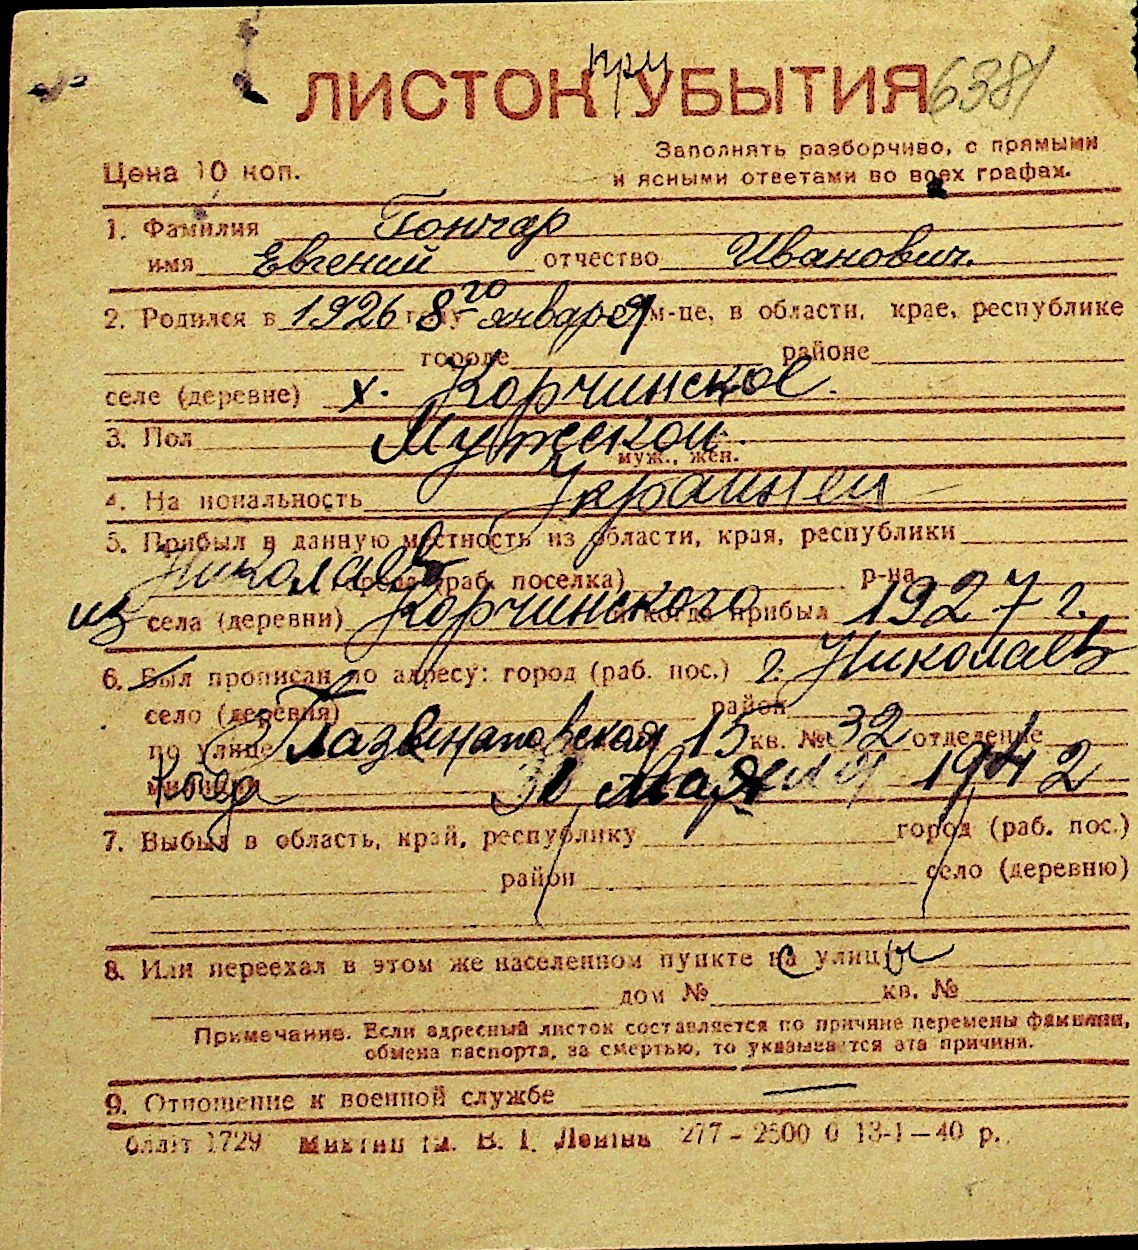 при
ЛИСТОК УБЫТИЯ 6381
Цена 10 коп.
Заполнять разборчиво, с прямыми
и ясными ответами во всех графах.
1. Фамилия Гончар
имя Евгений отчество Иванович.
2. Родился в 1926 году 8го января м-це, в области, крае, республике
городе районе
селе (деревне) х. Корчинское.
3. Пол Мужской.
муж., жен.
4. На иональность Украинец
5. Прибыл в данную местность из области, края, республики
Николаев города (раб. поселка) р-на
из села (деревни) Корчинского и когда прибыл 1927 г.
6. Был прописан по адресу: город (раб. пос.) г. Николаев
село (деревня) район
по улице 15 кв. № 32 отделение
милиции когда 1942
7. Выбыл в область, край, республику город (раб. пос.)
район село (деревню)
8. Или переехал в этом же населенном пункте с улицы
дом № кв. №
Примечание. Если адресный листок составляется по причине перемены фамилии,
обмена паспорта, за смертью, то указывается эта причина.
9. Отношение к военной службе —
1729 В. І. Леніна 277 – 2500 0 13-I – 40 р.